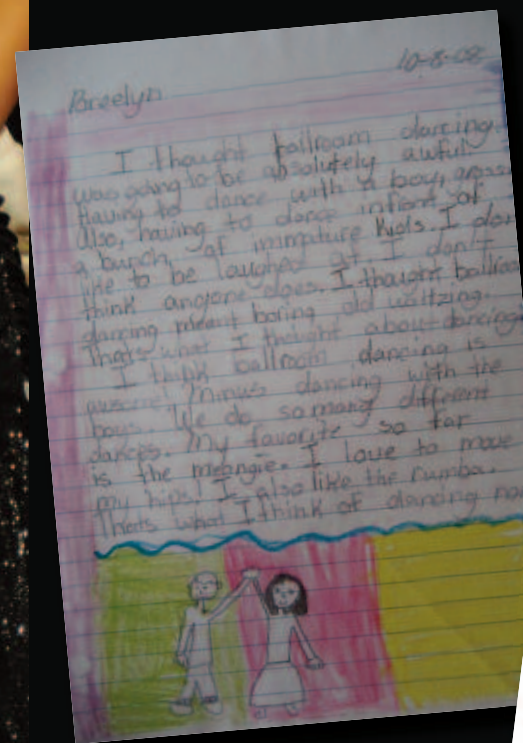 10-8-08
Breelyn
I thought ballroom dancing
was going to be absolutely awful.
Having to dance with a boy, gross
Also, having to dance infront of
a bunch of immature kids. I don
like to be laughed at I don't
think anyone does. I thought ballroo
dancing meant boring old waltzing.
Thats what I thought about dancing
I think ballroom dancing is
awsome! Minus dancing with the
boys. We do so many different
dances. My favorite so far
is the meangie. I love to move
my hips! I also like the rumba.
Thats what I think of dancing no